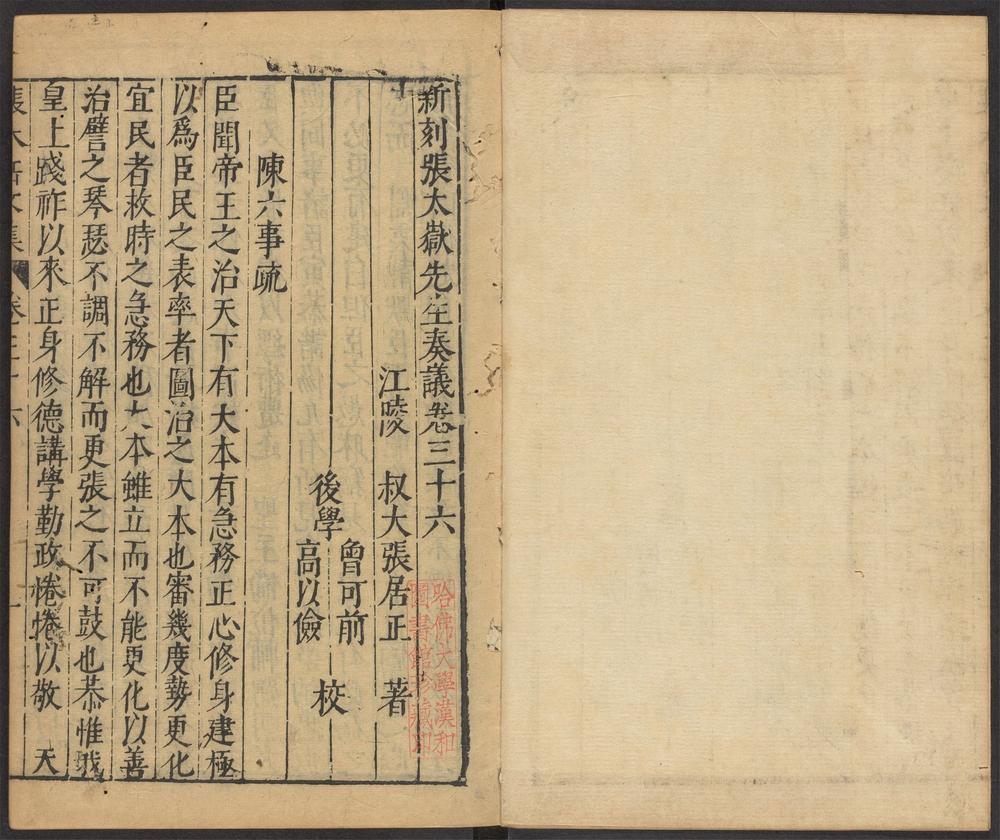 新刻張太嶽先生奏議卷三十六
江陵 叔大張居正 著
後學 曾可前 高以儉 校
陳六事疏
臣聞帝王之治天下有大本有急務正心修身建極
以爲臣民之表率者圖治之大本也審幾度勢更化
宜民者救時之急務也大本雖立而不能更化以善
治譬之琴瑟不調不解而更張之不可鼓也恭惟我
皇上踐祚以來正身修德講學勤政惓惓以敬 天
張太岳文集 卷三十六 一
哈佛大學漢和
圖書館珍藏印